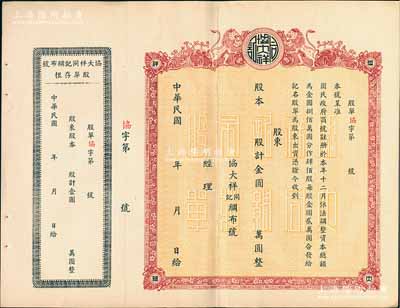 協大祥
股單協字第 號
本號呈准
國民政府商號註冊於本年十二月依法調整資本總額
為金圓捌佰萬圓分作肆佰股每股金圓貳萬圓合發給
記名股單為股東出資憑證今收到
股東
股本 股計金圓 萬圓整
協大祥同記綢布號
經理
中華民國 年 月 日給
協字第 號
協大祥同記綢布號
股單存根
股單協字第 號
股東
股本 股計金圓 萬圓整
中華民國 年 月 日給